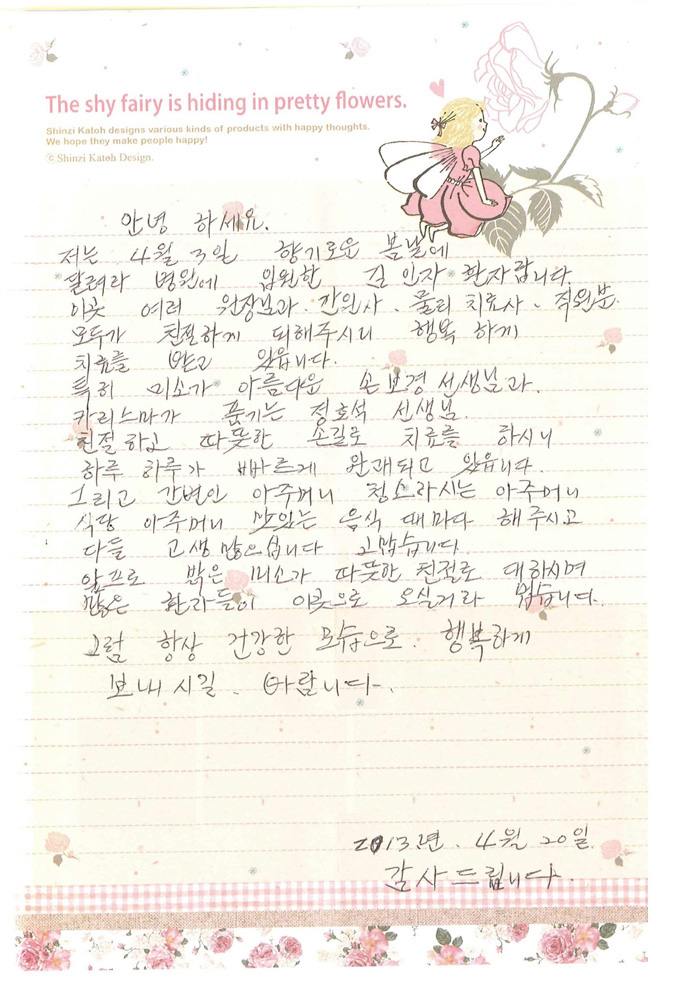 The shy fairy is hiding in pretty flowers.
Shinzi Katoh designs various kinds of products with happy thoughts.
We hope they make people happy!
© Shinzi Katoh Design.
안녕 하세요.
저는 4월 3일 향기로운 봄날에
달려라 병원에 입원한 김인자 환자랍니다.
이곳 여러 원장님과. 간원사. 물리치료사. 직원분.
모두가 친절하게 되해주시니 행복 하게
치료를 받고 있읍니다.
특히 미소가 아름다운 손보경 선생님과.
카리스마가 풍기는 정호석 선생님.
친절하고 따뜻한 손길로 치료를 하시니
하루 하루가 빠르게 완쾌되고 있읍니다.
그리고 간변인 아주머니 청소하시는 아주머니
식당 아주머니 맛있는 음식 때마다 해주시고
다들 고생 많으십니다 고맙습니다.
앞프로 밝은 미소가 따뜻한 친절로 대하시며
많은 환자들이 이곳으로 오실거라 믿습니다.
그럼 항상 건강한 모습으로. 행복하게
보내시길. 바랍니다.
2013년. 4월 20일.
감사드립니다.